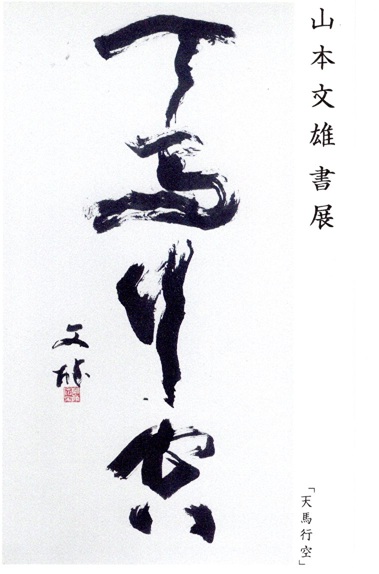 山本文雄書展
天馬行空
文雄
「天馬行空」